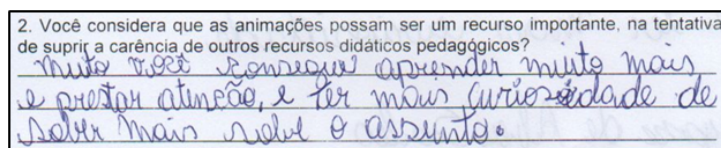 2. Você considera que as animações possam ser um recurso importante, na tentativa
de suprir a carência de outros recursos didáticos pedagógicos?
muito você consegue aprender muito mais
e prestar atenção, e ter mais curiosidade de
saber mais sobre o assunto.